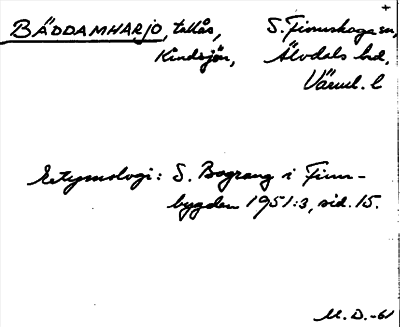 BÄDDAMHARJO, tallås, S. Finnskoga sn,
Kindsjön, Älvdals hd,
Värml. l
Etymologi: S. Bograng i Finn-
bygden 1951:3, sid. 15.
M. D. -61